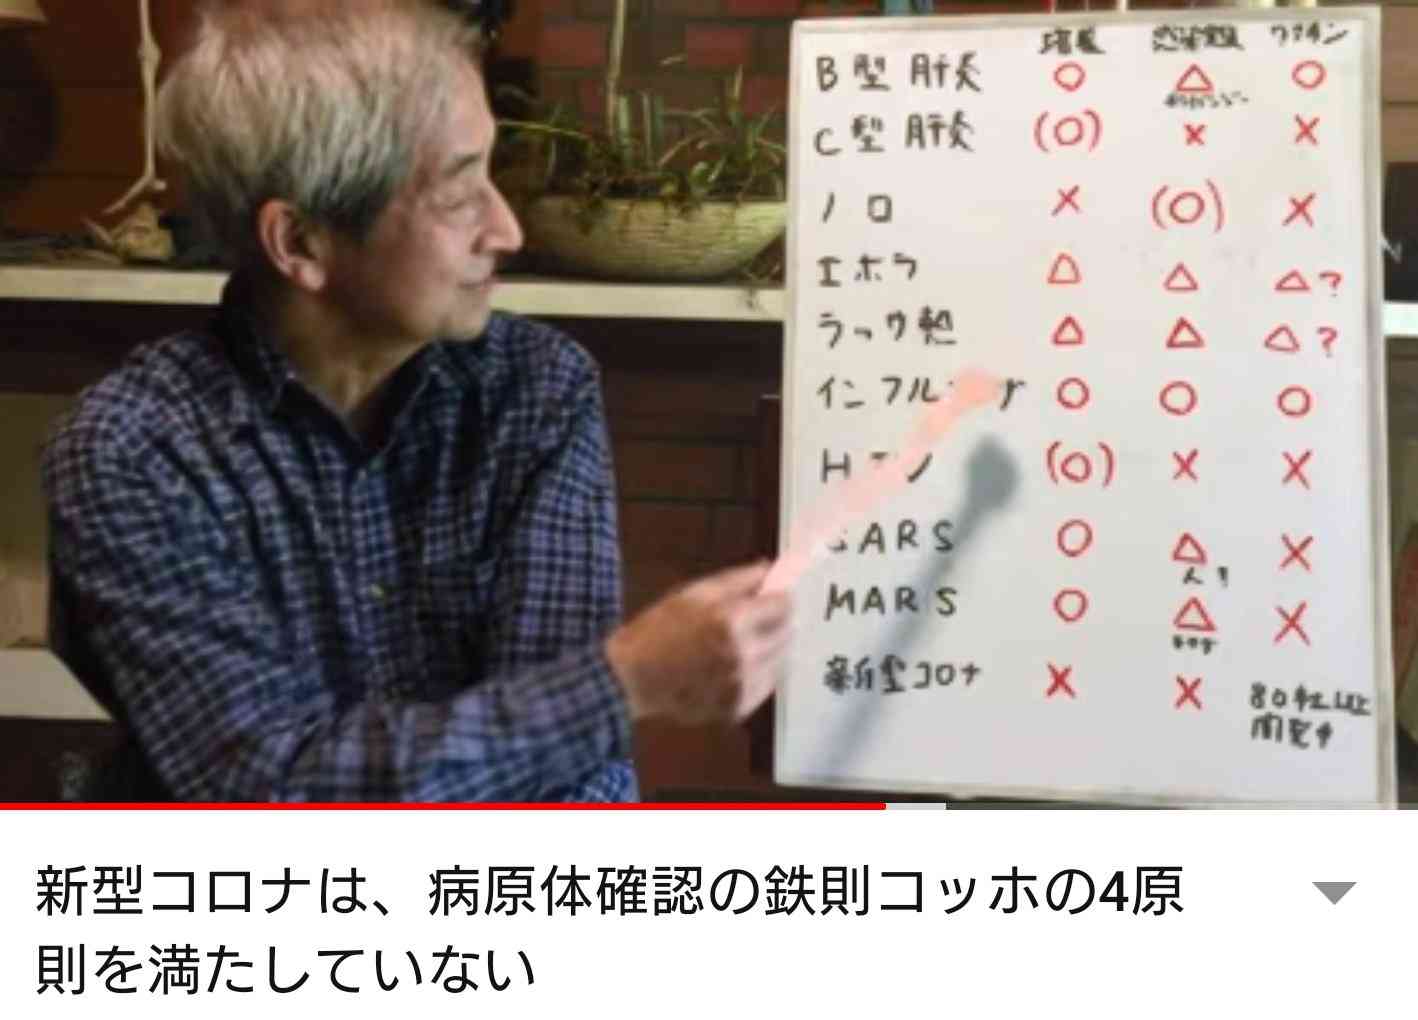 培養 感染実験 ワクチン
B型肝炎 ○ △ ○
チンパンジー
C型肝炎 (○) × ×
ノロ × (○) ×
エボラ △ △ △?
ラッサ熱 △ △ △?
インフル ○ ○ ○
H (○) × ×
SARS ○ △ ×
MARS ○ △ ×
新型コロナ × × 80社以上
開発中
新型コロナは、病原体確認の鉄則コッホの4原
則を満たしていない